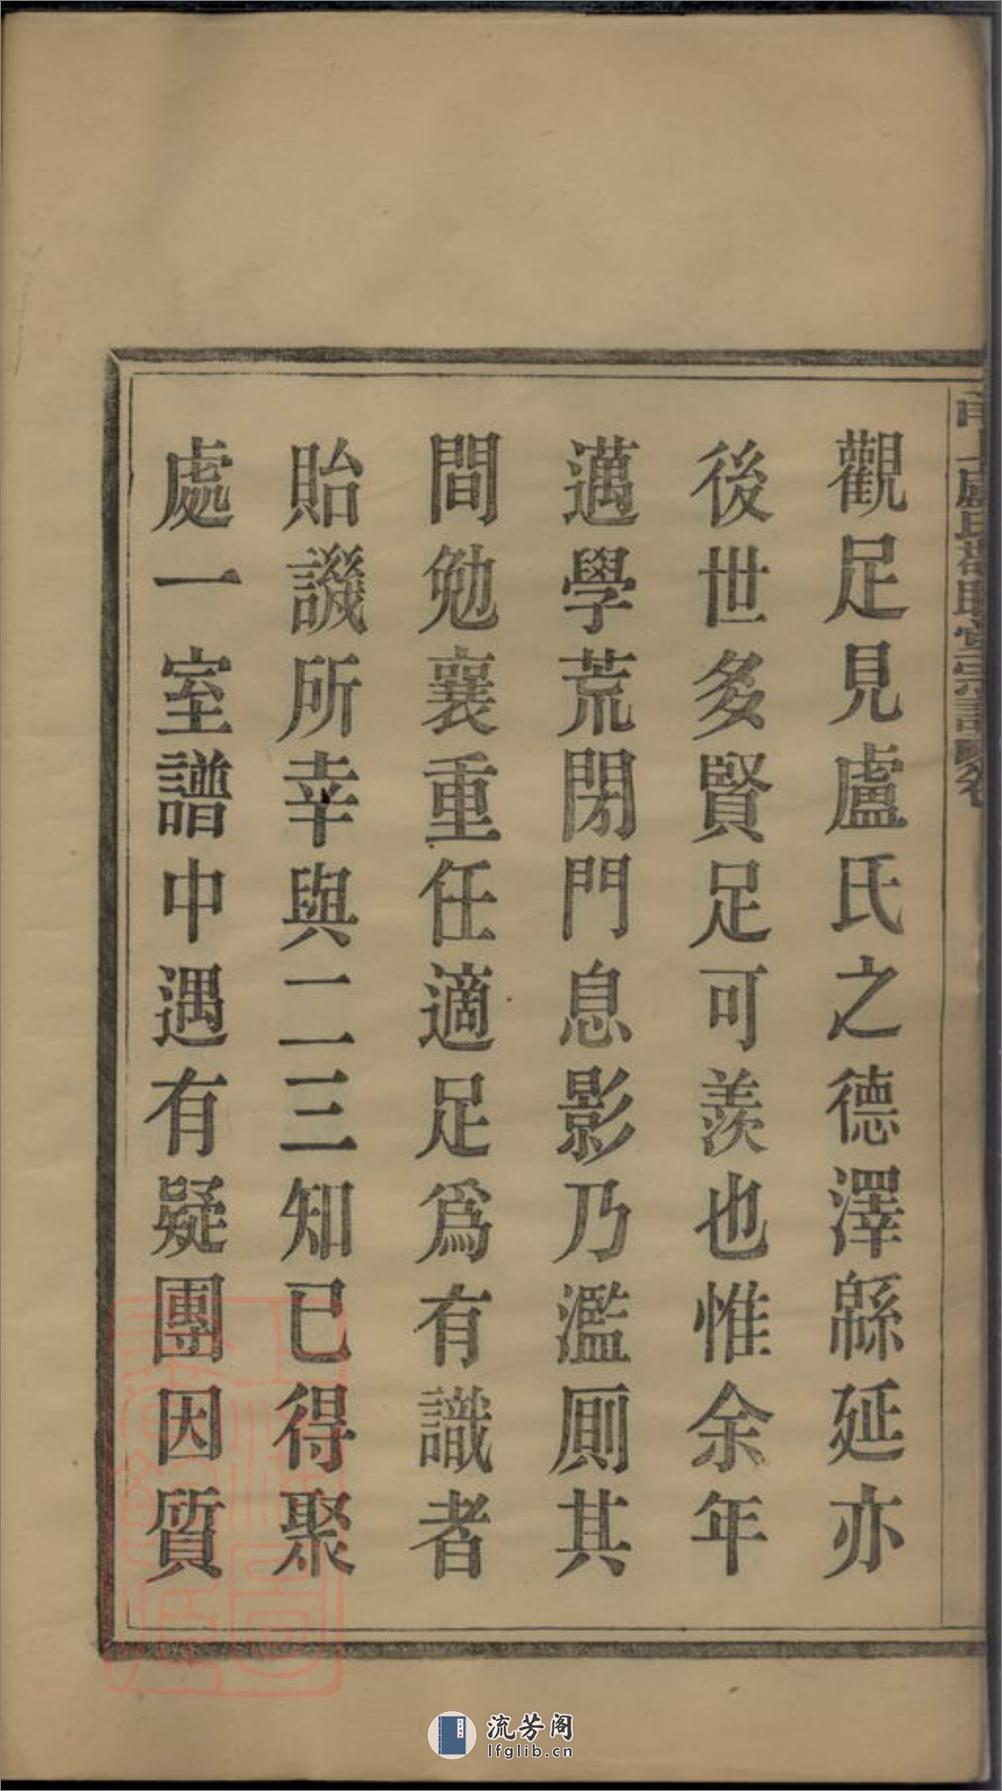 觀足見盧氏之德澤緜延亦
後世多賢足可羨也惟余年
邁學荒閉門息影乃濫厠其
間勉襄重任適足爲有識者
貽譏所幸與二三知已得聚
處一室譜中遇有疑團因質
流芳阁
lfglib.cn